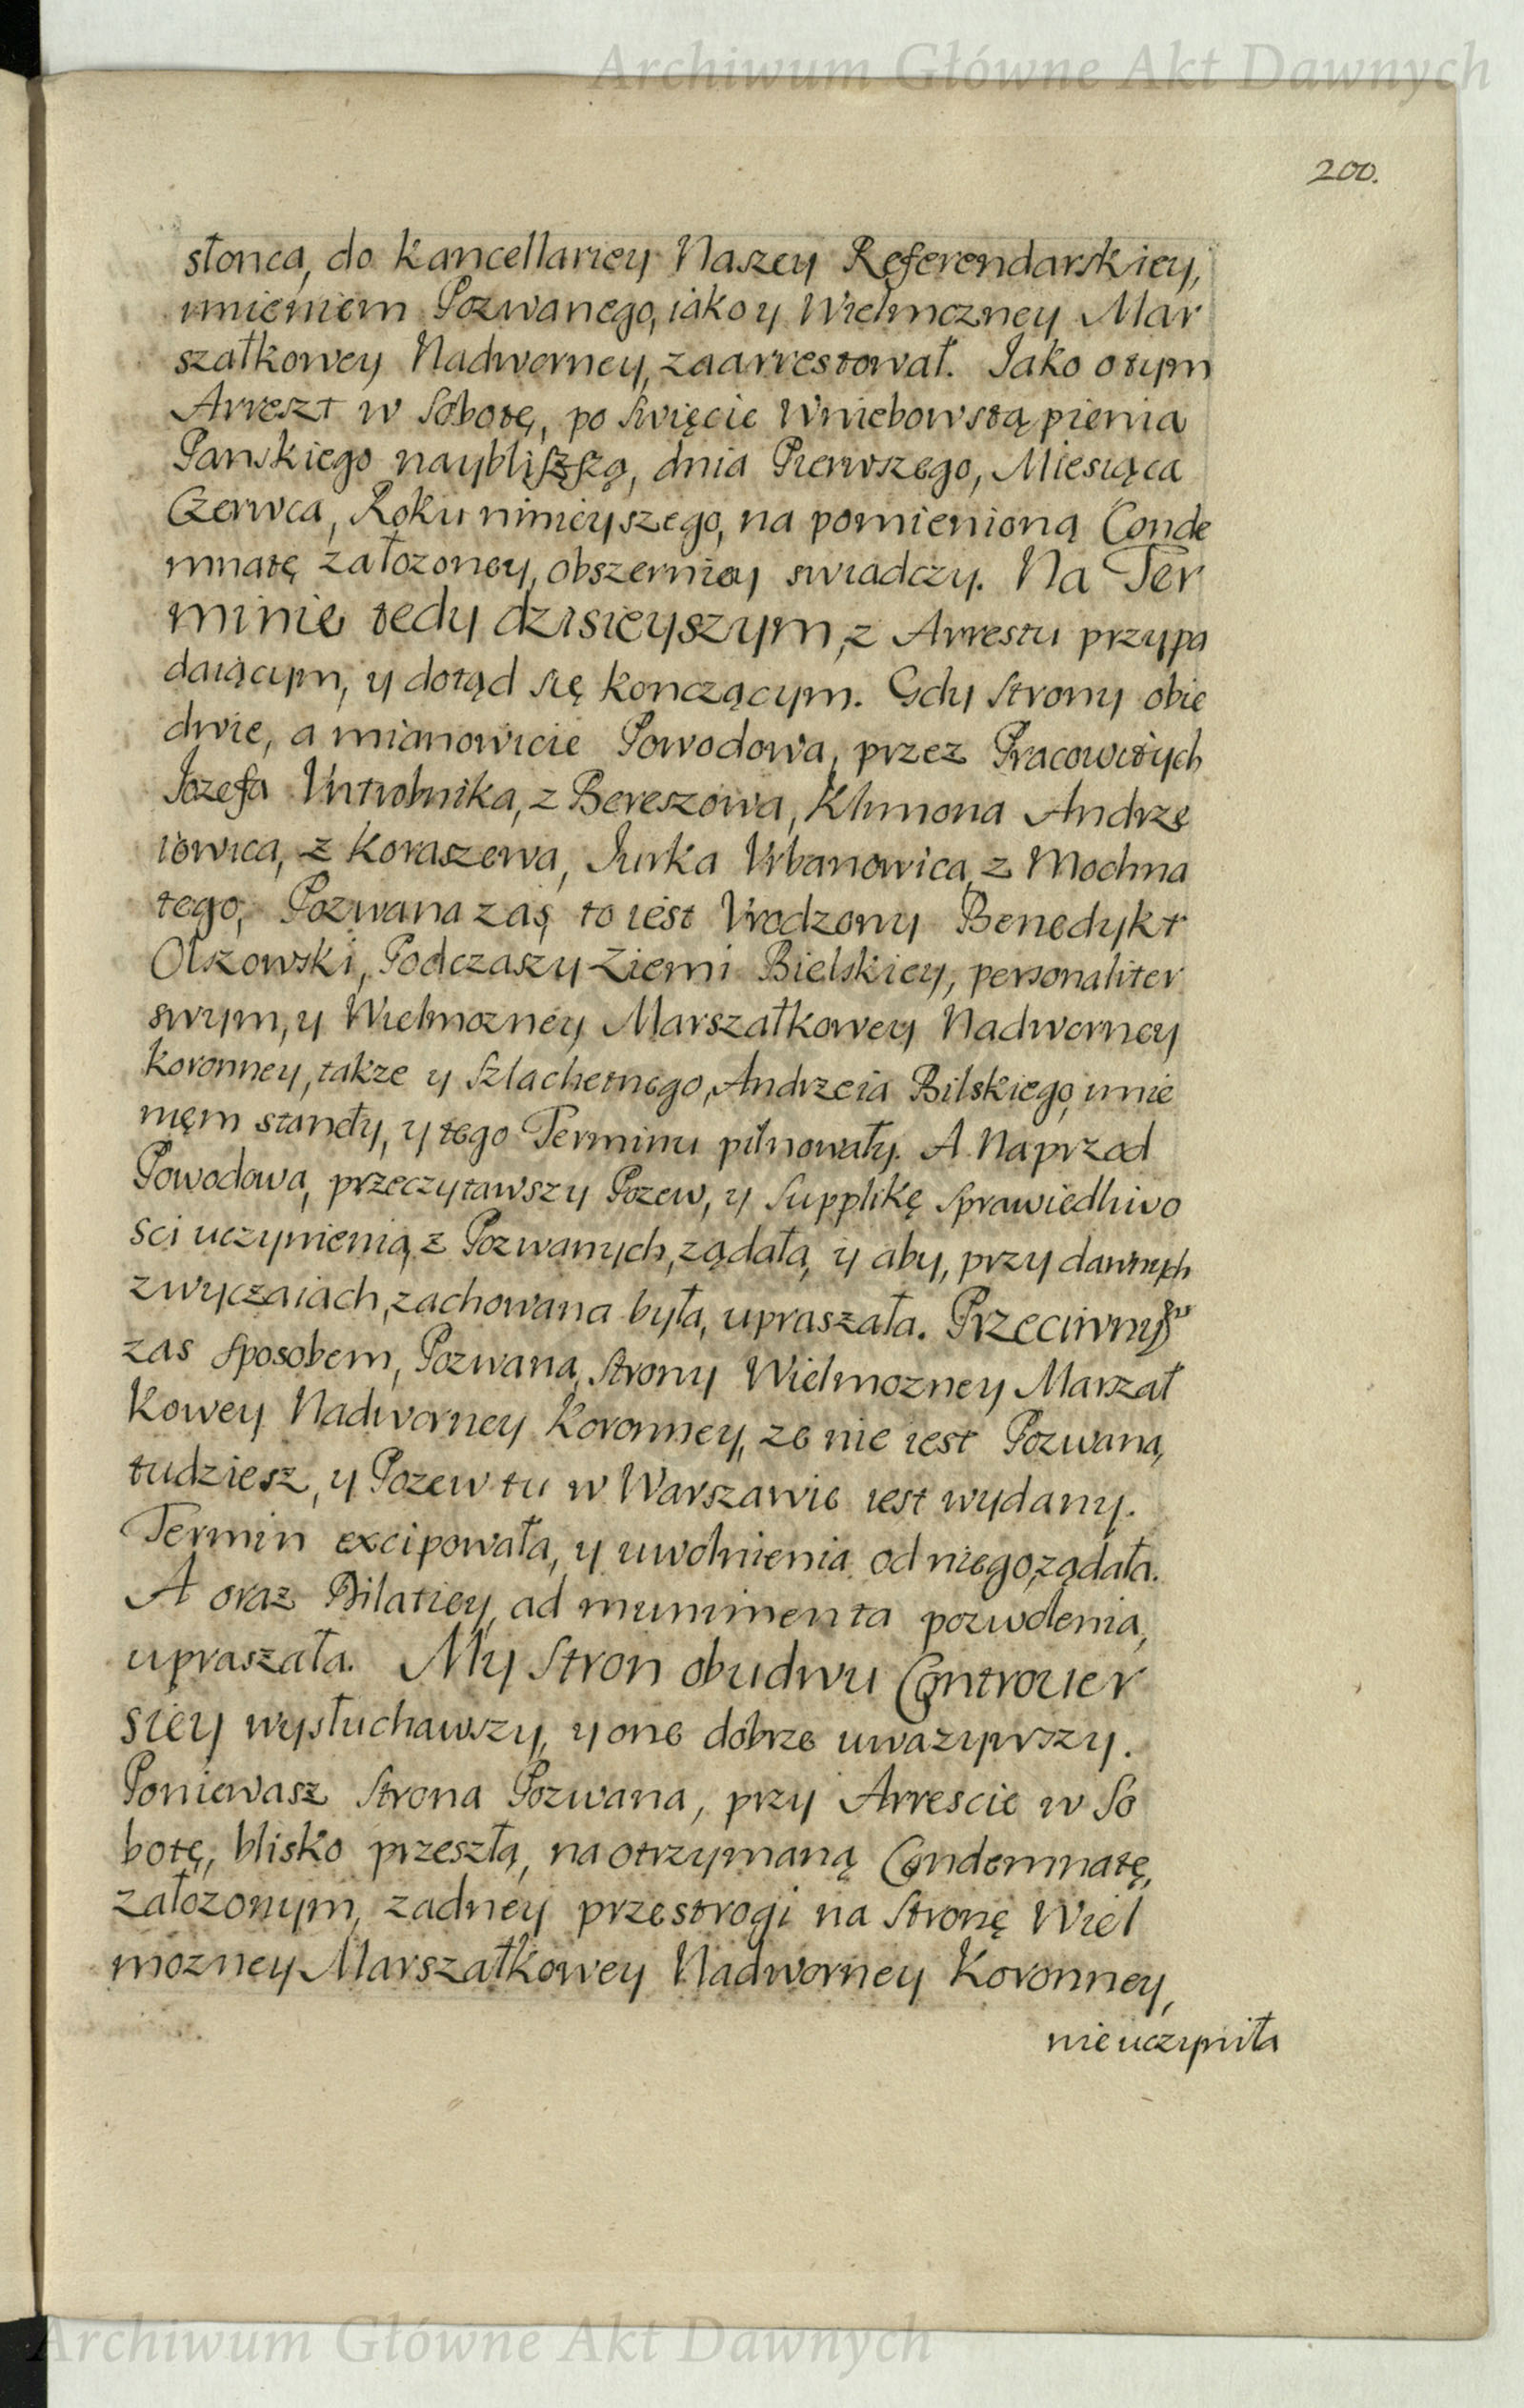 Archiwum Główne Akt Dawnych
200.
słonca, do Kancellariey Naszey Referendarskiey,
imieniem Pozwanego, iako y Wielmozney Mar
szałkowey Nadworney, zaarrestował. Jako o tym
Arreszt w Sobotę, po Swięcie Wniebowstąpienia
Panskiego naybliszszą, dnia Pierwszego, Miesiąca
Czerwca, Roku ninieyszego, na pomienioną Conde
mnatę załozoney, obszerniey swiadczy. Na Ter
minie tedy dzisieyszym, z Arrestu przypa
daiącym, y dotąd się konczącym. Gdy Strony obie
dwie, a mianowicie Powodowa, przez Pracowitych
Jozefa z Bereszowa, Klimona Andrze
iowica, z Koraszewa, Jurka Vrbanowica, z Mochna
tego, Pozwana zaś, to iest Vrodzony Benedykt
Olszowski, Podczaszy Ziemi Bielskiey, personaliter
swym, y Wielmozney Marszałkowey Nadworney
Koronney, takze y Szlachetnego, Andrzeia Bilskiego, imie
nięm stanęły, y tego Terminu pilnowały. A Naprzod
Powodowa, przeczytawszy Pozew, y Supplikę Sprawiedliwo
sci uczynienia, z Pozwanych, ządała, y aby, przy dawnych
zwyczaiach, zachowana była, upraszała. Przeciwnym
zas sposobem, Pozwana, Strony Wielmozney Marszał
kowey Nadworney Koronney, ze nie iest Pozwana,
tudziesz, y Pozew tu w Warszawie iest wydany.
Termin excipowała, y uwolnienia od niego, ządała.
A oraz Dilatiey, ad munimenta pozwolenia,
upraszała. My Stron obudwu Controuer
siey wysłuchawszy, y one dobrze uwazywszy.
Poniewasz Strona Pozwana, przy Arrescie w So
botę, blisko przeszłą, na otrzymaną Condemnatę,
załozonym, zadney przestrogi na Stronę Wiel
mozney Marszałkowey Nadworney Koronney,
nie uczyniła
Archiwum Główne Akt Dawnych